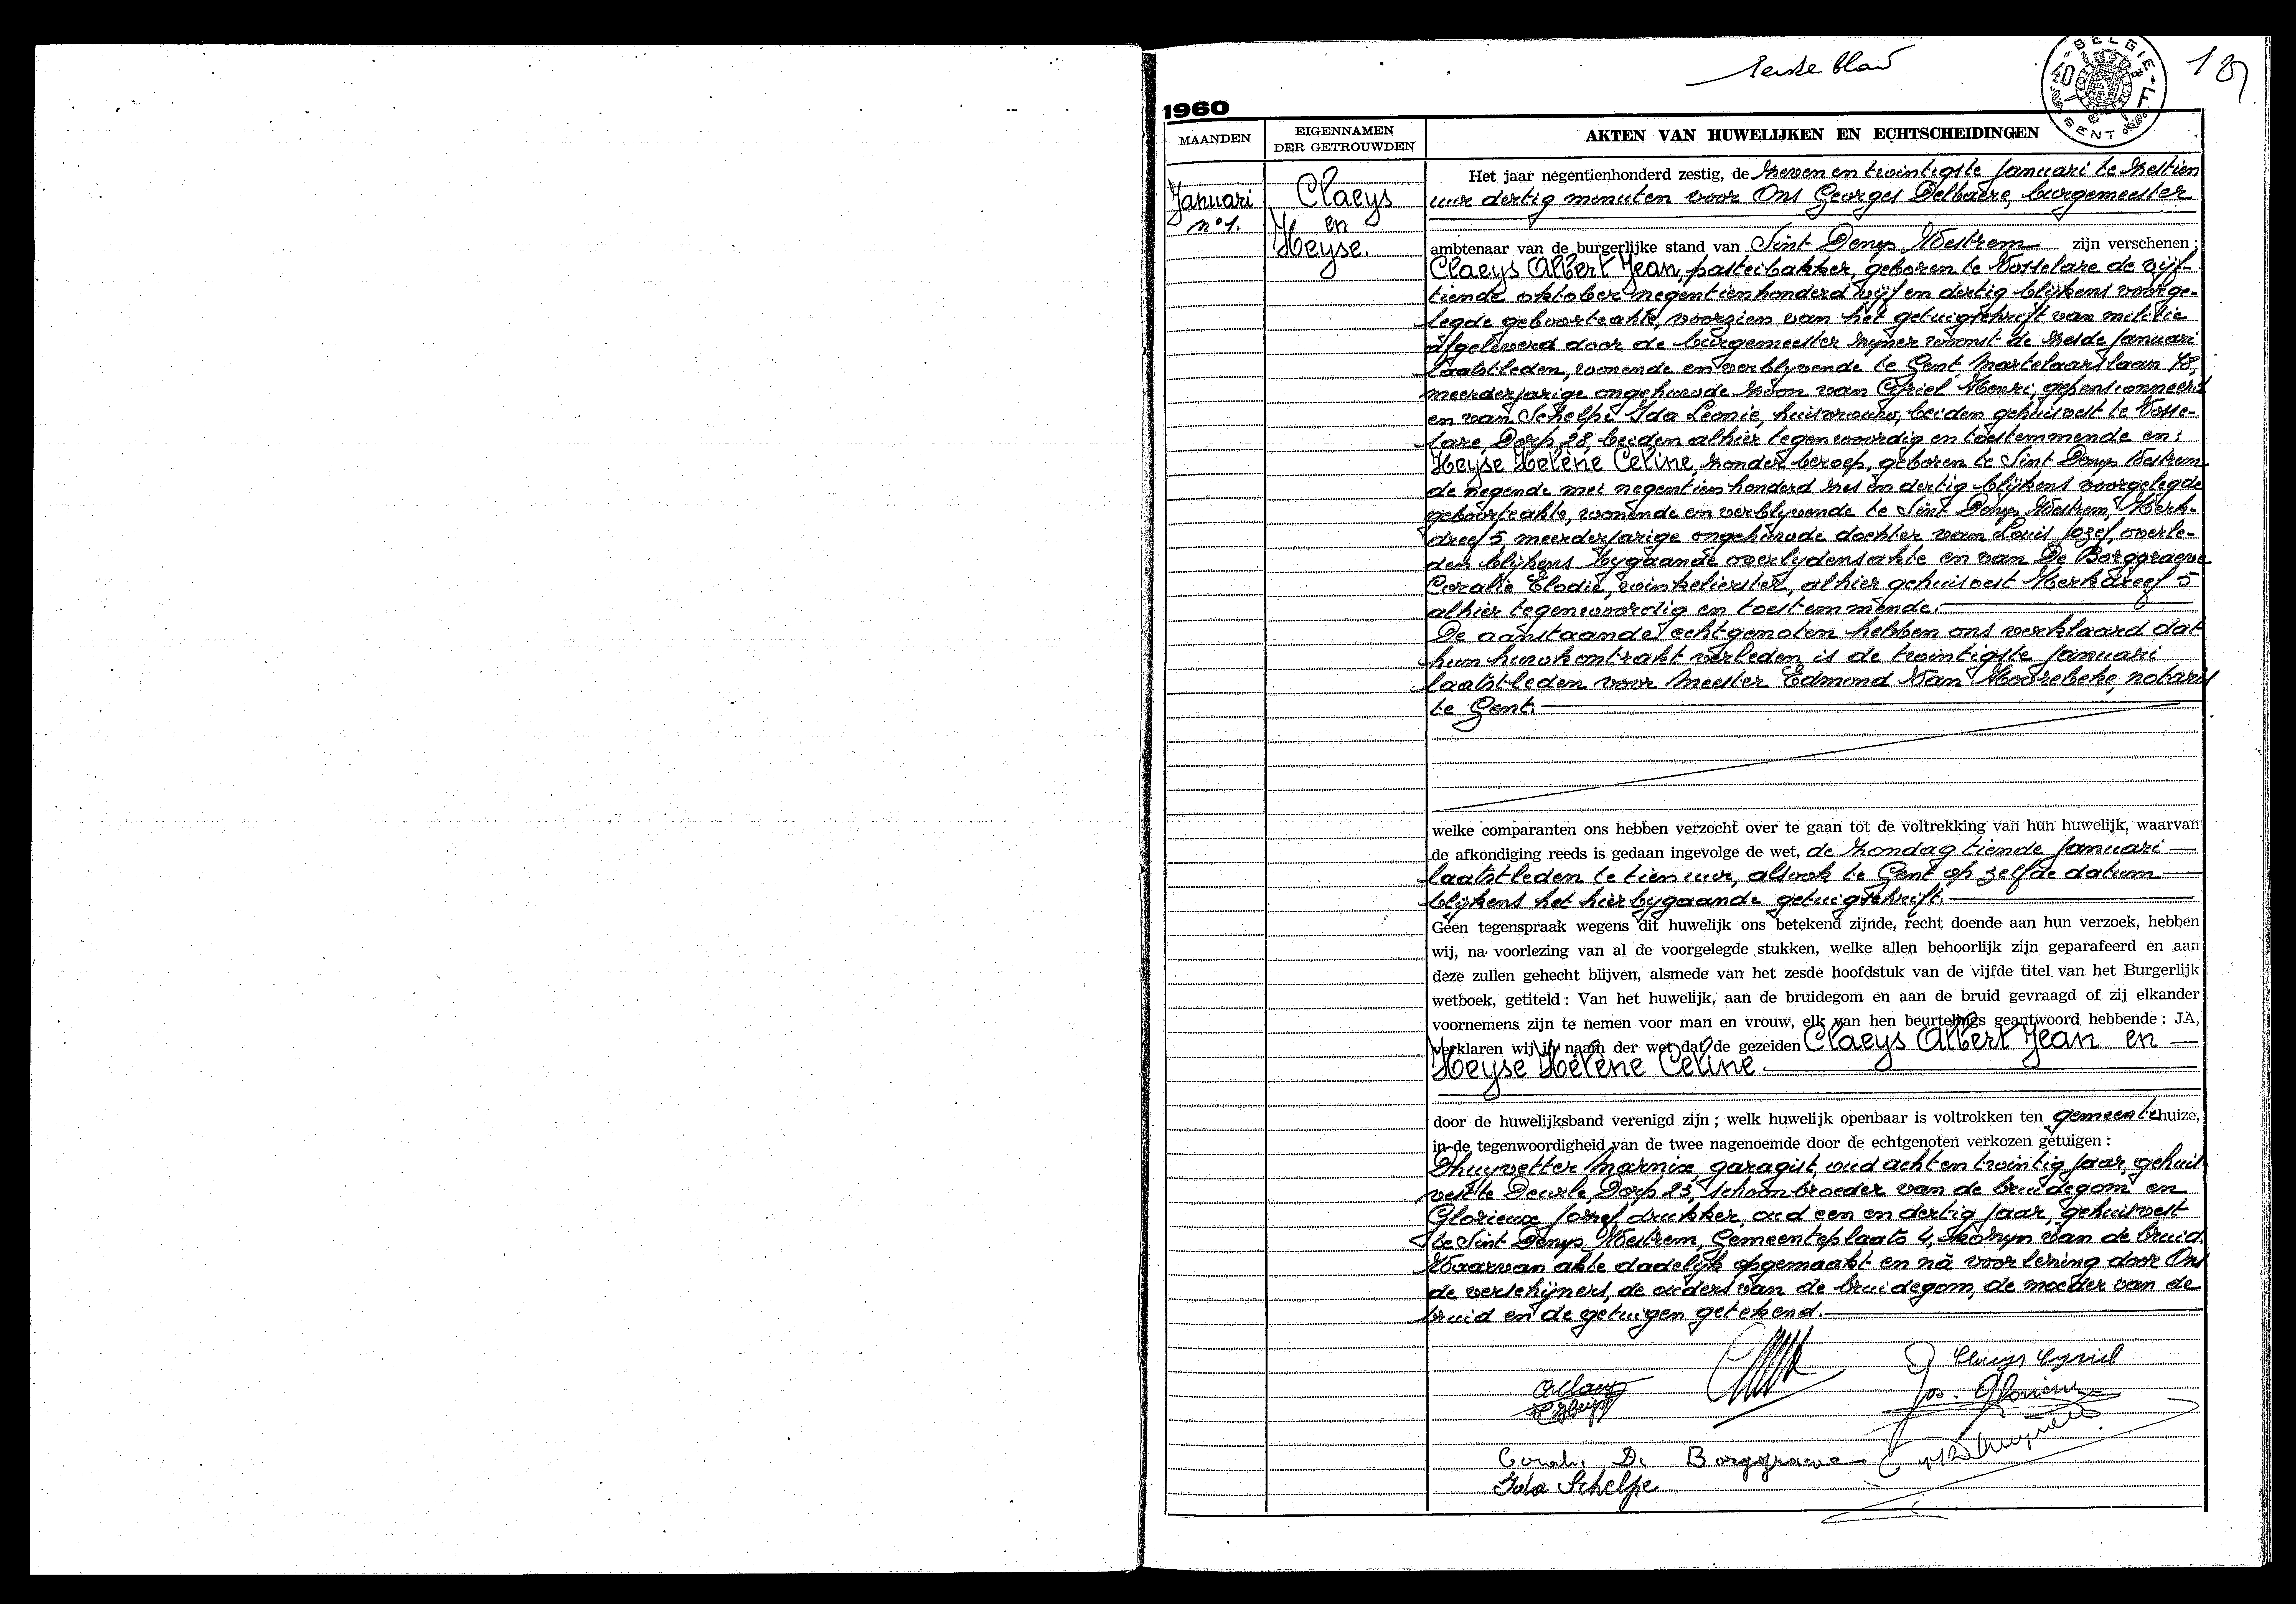 Eerste blad
BELGIE
GENT
1960
MAANDEN
EIGENNAMEN
DER GETROUWDEN
AKTEN VAN HUWELIJKEN EN ECHTSCHEIDINGEN
Januari
n° 1.
Claeys
en
Heyse.
Het jaar negentienhonderd zestig, de zeven en twintigste Januari te zestien
uur dertig minuten voor Ons Georges Delbaere, burgemeester
ambtenaar van de burgerlijke stand van Sint Denys Westrem zijn verschenen ;
Claeys Albert Jean, pasteibakker, geboren te Vosselare de vijf-
tiende oktober negentienhonderd vijf en dertig blijkens voorge-
legde geboorteakte, voorzien van het getuigschrift van militie
afgeleverd door de burgemeester zyner woonst de zesde Januari
laatstleden, wonende en verblyvende te Gent, Martelaarslaan 78,
meerderjarige ongehuwde zoon van Cyriel Henri, gepensionneerd
en van Schelpe Ida Leonie, huisvrouw, beiden gehuisvest te Vosse-
lare, Dorp 28, beiden alhier tegenwoordig en toestemmende en:
Heyse Hélène Celine, zonder beroep, geboren te Sint Denys Westrem
de negende mei negentienhonderd zes en dertig blijkens voorgelegde
geboorteakte, wonende en verblyvende te Sint Denys Westrem, Kerk-
dreef 5, meerderjarige ongehuwde dochter van Louis Jozef, overle-
den blijkens bygaande overlydensakte en van De Borggraeve
Coralie Elodie, winkelierster, alhier gehuisvest Kerkdreef 5
alhier tegenwoordig en toestemmende.
De aanstaande echtgenoten hebben ons verklaard dat
hun huwkontrakt verleden is de twintigste Januari
laatstleden voor Meester Edmond Van Hoorebeke, notaris
te Gent.
welke comparanten ons hebben verzocht over te gaan tot de voltrekking van hun huwelijk, waarvan
de afkondiging reeds is gedaan ingevolge de wet, de zondag tiende Januari
laatstleden te tien uur, alsook te Gent op zelfde datum
blijkens het hierbygaande getuigschrift.
Geen tegenspraak wegens dit huwelijk ons betekend zijnde, recht doende aan hun verzoek, hebben
wij, na voorlezing van al de voorgelegde stukken, welke allen behoorlijk zijn geparafeerd en aan
deze zullen gehecht blijven, alsmede van het zesde hoofdstuk van de vijfde titel van het Burgerlijk
wetboek, getiteld : Van het huwelijk, aan de bruidegom en aan de bruid gevraagd of zij elkander
voornemens zijn te nemen voor man en vrouw, elk van hen beurtelings geantwoord hebbende : JA,
verklaren wij in naam der wet dat de gezeiden Claeys Albert Jean en
Heyse Hélène Celine
door de huwelijksband verenigd zijn ; welk huwelijk openbaar is voltrokken ten gemeentehuize,
in de tegenwoordigheid van de twee nagenoemde door de echtgenoten verkozen getuigen :
Dhuyvetter Marnix, garagist, oud acht en twintig jaar, gehuis-
vest te Deurle, Dorp 23, schoonbroeder van de bruidegom en
Glorieux Jozef, drukker, oud een en dertig jaar, gehuisvest
te Sint Denys Westrem, Gemeenteplaats 4, kozyn van de bruid.
Waarvan akte dadelijk opgemaakt en nà voorlezing door Ons
de verschijners, de ouders van de bruidegom, de moeder van de
bruid en de getuigen getekend.
Claeys Cyriel
A Claeys
H. Heyse
Jos. Glorieux
Coralie De Borggraeve
Ida Schelpe